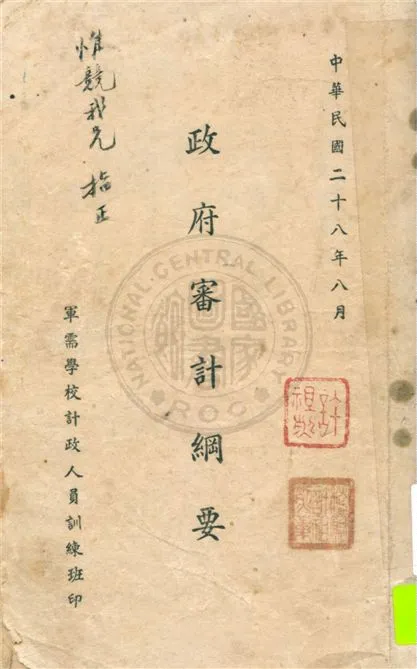 中華民國二十八年八月
政府審計綱要
NATIONAL CENTRAL LIBRARY
ROC
惟競我兄 指正
軍需學校計政人員訓練班印